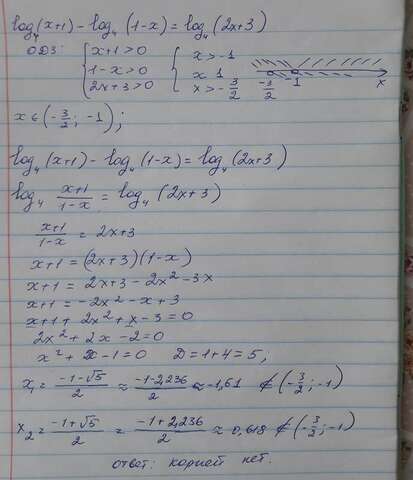 log₄(x+1) - log₄(1-x) = log₄(2x+3)
ОДЗ:
{ x+1>0 { x>-1
{ 1-x>0 { x 1
{ 2x+3>0 { x>-3/2
-3/2 1 x
x ∈ (-3/2; -1);
log₄(x+1) - log₄(1-x) = log₄(2x+3)
log₄ (x+1)/(1-x) = log₄(2x+3)
(x+1)/(1-x) = 2x+3
x+1 = (2x+3)(1-x)
x+1 = 2x+3-2x²-3x
x+1 = -2x²-x+3
x+1+2x²+x-3=0
2x²+2x-2=0
x²+x-1=0 D=1+4=5;
x₁ = (-1-√5)/2 ≈ (-1-2,236)/2 ≈ -1,61 ∉ (-3/2; -1)
x₂ = (-1+√5)/2 ≈ (-1+2,236)/2 ≈ 0,618 ∉ (-3/2; -1)
ответ: корней нет.